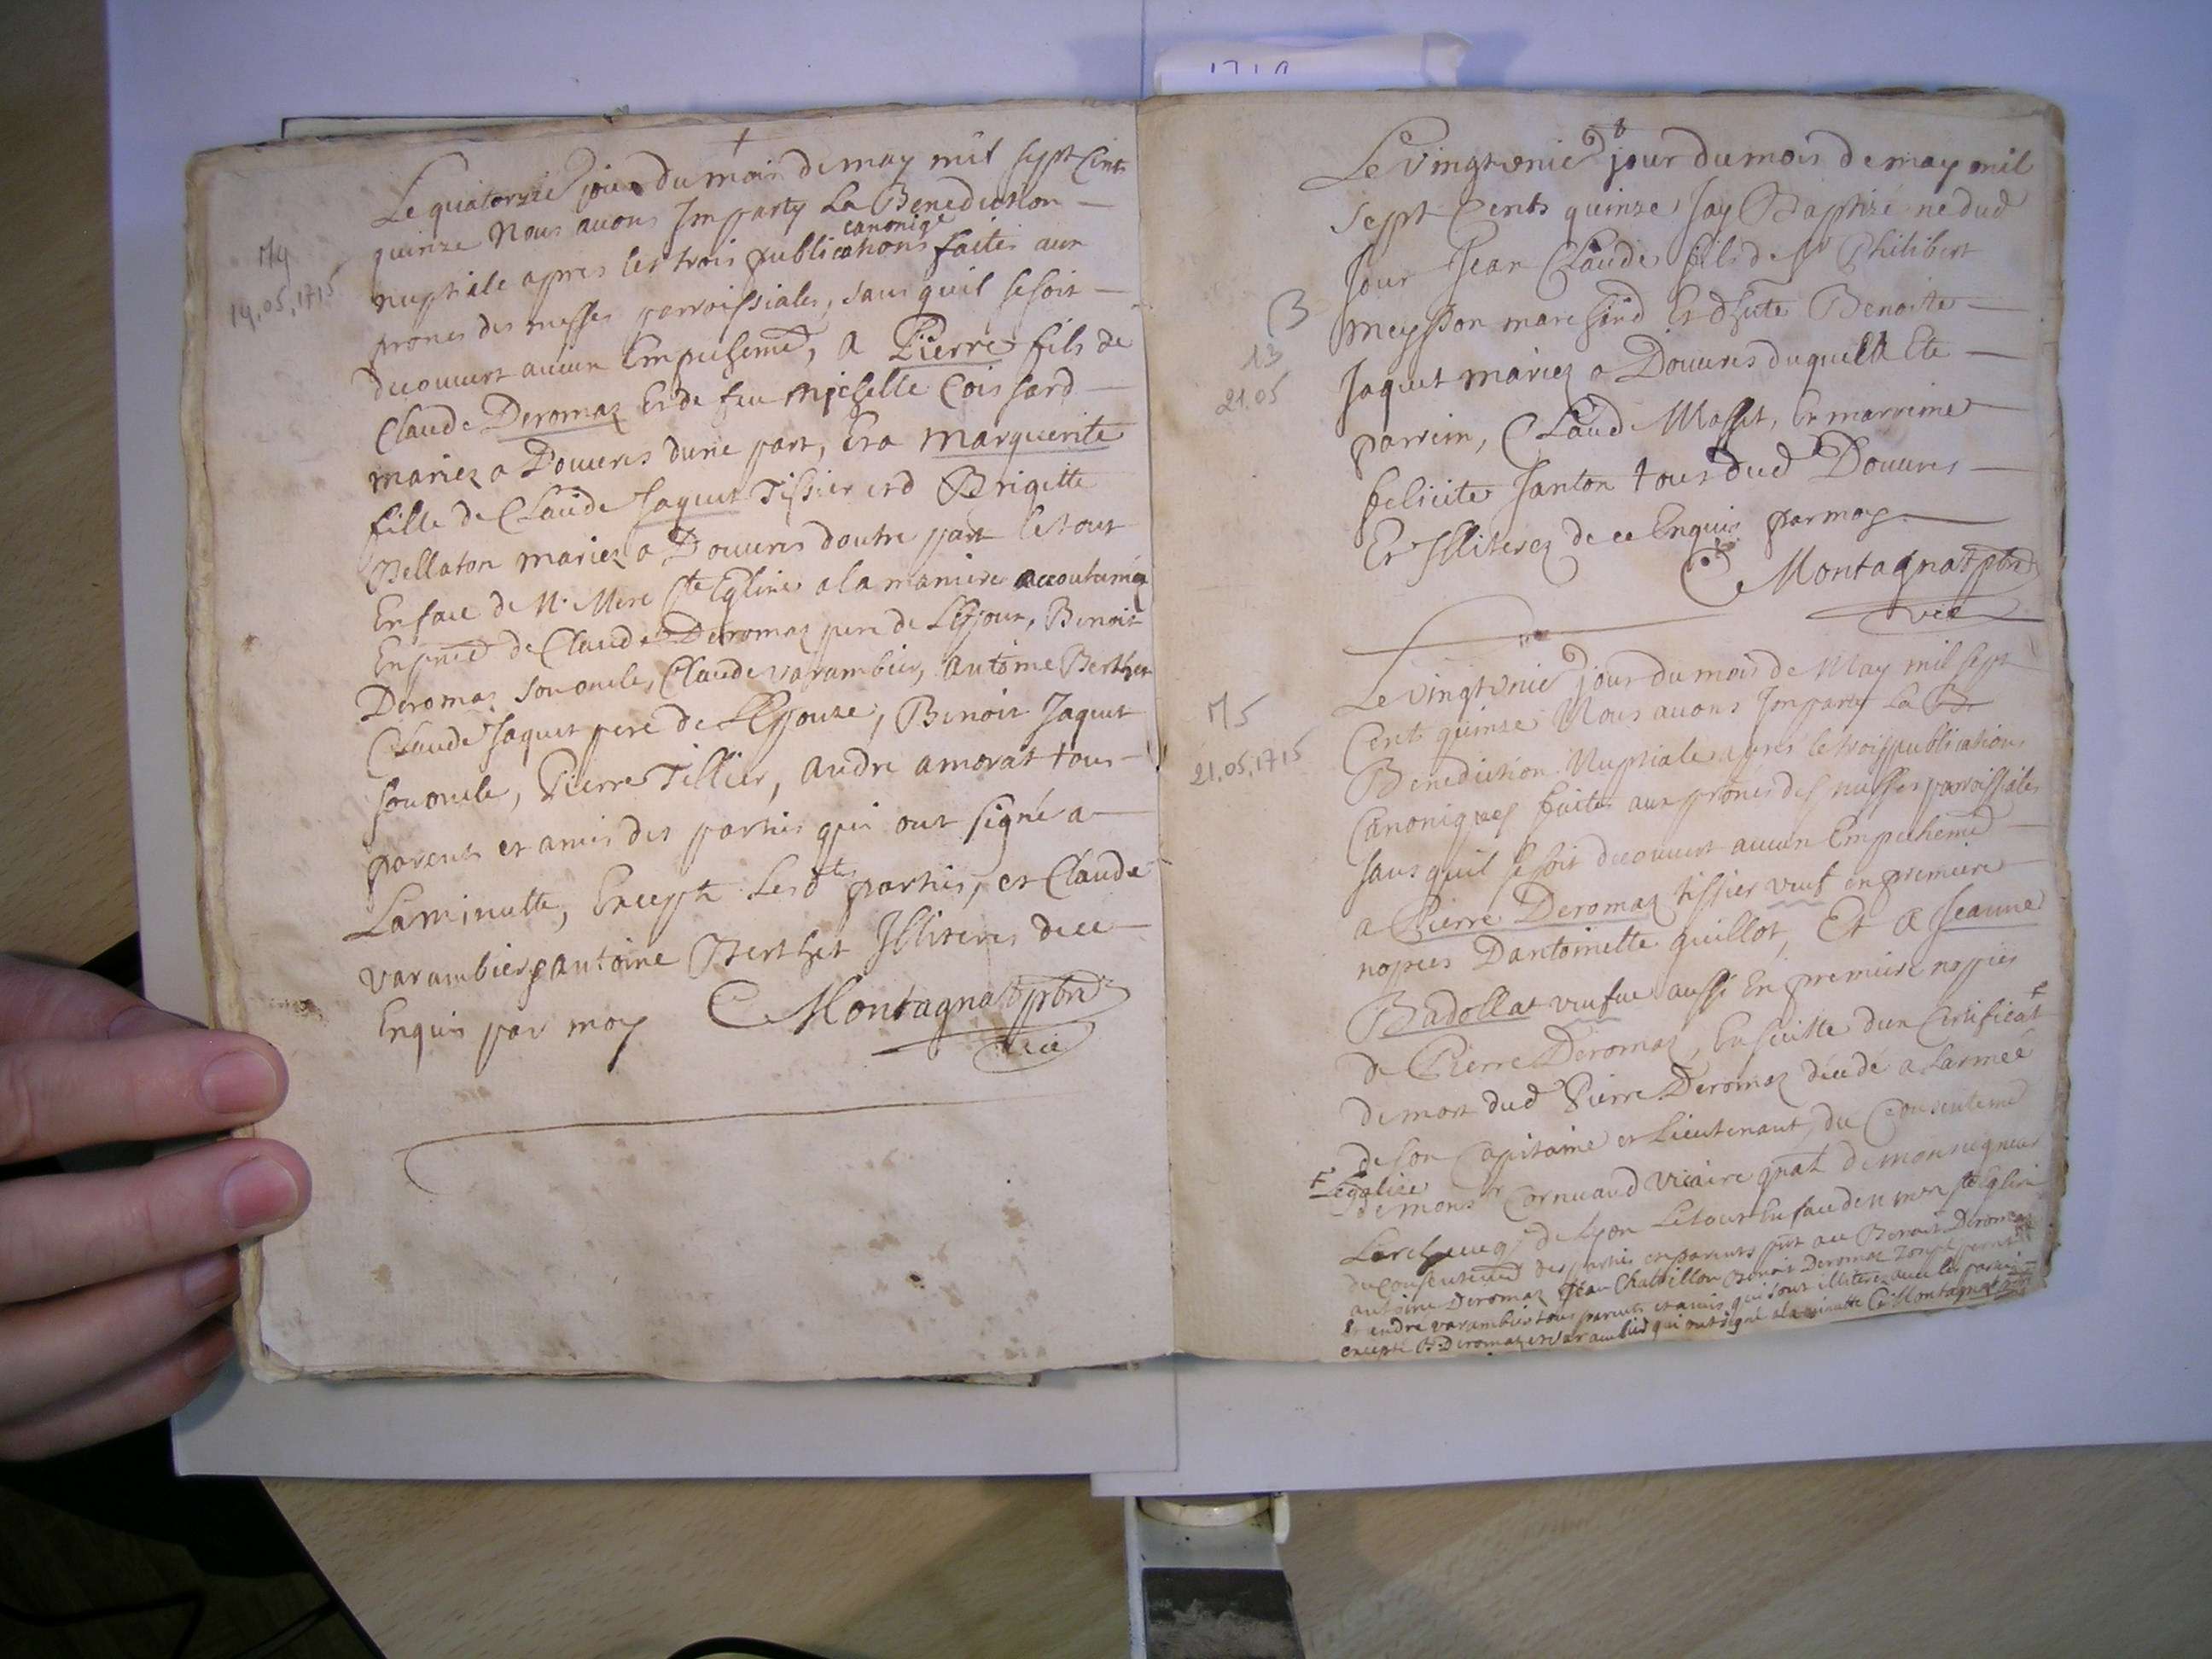 1715
+
M4
14.05.1715
Le quatorzie jour du mois de may mil sept Cents
quinze Nous avons Imparty La Benediction
canoniqe
nuptiale apres les trois publications faites aux
prones des messes parroissiales, sans quil se soit
decouvert aucun Empechemd, a Pierre fils de
Claude Deromaz Et de feu Michelle Coissard
mariez a Douures dune part, Et a Marguerite
fille de Claude Jaquet Tissier et d Brigitte
Bellaton mariez a Douures dautre part le tout
En face de N. Mere Ste Eglise a la maniere accoutumée
En pncé de Claude Deromaz pere de L'Epoux, Benoit
Deromaz son oncle, Claude varambier, Antoine Berthet
Claude Jaquet pere de L'Epouze, Benoit Jaquet
son oncle, Pierre Tillier, andre amorat tous
parents et amis des parties qui ont signé a
La minutte, Excepte Lesdtes parties, et Claude
varambier, antoine Berthet Illiteres de ce
Enquis par moy C Montagnat pbre
vic
B
13
21.05
Le vingt vnie jour du mois de may mil
sept Cents quinze Jay Baptizé ne dud
Jour Jean Claude fils de Sr Philibert
meysson marchand Et dhte Benoite
Jaquet mariez a Douures duquel a Ete
parrein, Claude Masset, Et marreine
felicite Janton tous dud Douures
Et Illiterez de ce Enquis par moy
C Montagnat pbre
vic
M5
21.05.1715
Le vingt vnie jour du mois de May mil sept
Cents quinze Nous avons Imparty La Be
Benediction Nuptiale apres le trois publications
Canoniques faites aux prones des messes parroissiales
sans quil se soit decouvert aucun Empechemd
a Pierre Deromaz tissier veuf en premiere
nopces Dantoinette quillot, Et a Jeanne
Badollat veufue aussi En premiere nopces
de Pierre Deromaz, En suitte dun Certificat +
de mort dud Pierre Deromaz décédé a Larmée
de son Capitaine et Lieutenant, du Consentemd
+ Legalicé
de monsr Cornuaud Vicaire gnal de monseigneur
Larcheueq de Lyon Le tout En face de N mere Ste Eglise
du consentemd des parties et parents pnt ace Benoit Deromaz
antoine Deromaz Jean Chatillon Benoit Deromaz
Et andre varambier tous parents et amis qui sont illiterez avec les parties
excepté B. Deromaz et varambier qui ont signé a la minutte C Montagnat pbre